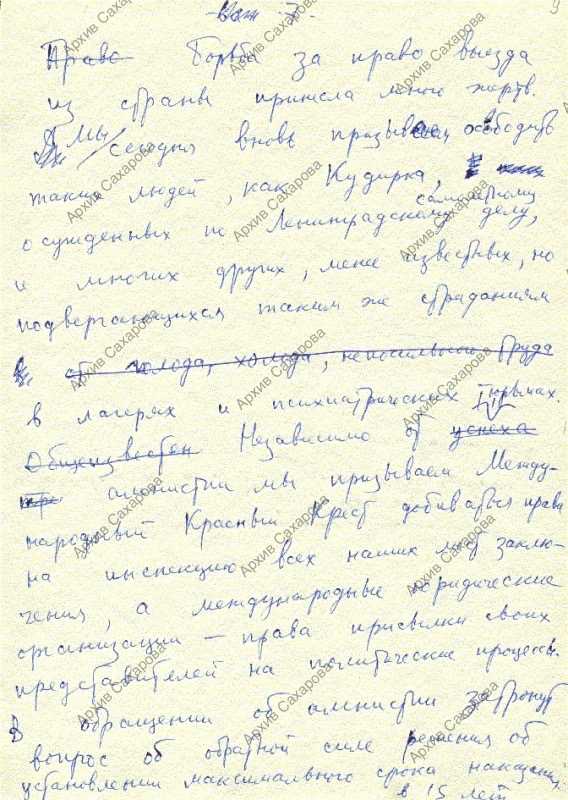 9
Право Борьба за право выезда
из страны принесла много жертв.
Мы сегодня вновь призываем освободить
таких людей, как Кудирка,
самолетному
осужденных по Ленинградскому делу,
и многих других, менее известных, но
подвергающихся таким же страданиям
от голода, холода, непосильного труда
в лагерях и психиатрических тюрьмах.
Общеизвестен Независимо от успеха
амнистии мы призываем Между-
народный Красный Крест добиваться права
на инспекцию всех наших мест заклю-
чения, а международные юридические
организации — права присылки своих
представителей на политические процессы.
В обращении об амнистии затронут
вопрос об обратной силе решения об
установлении максимального срока наказания
в 15 лет
Архив Сахарова